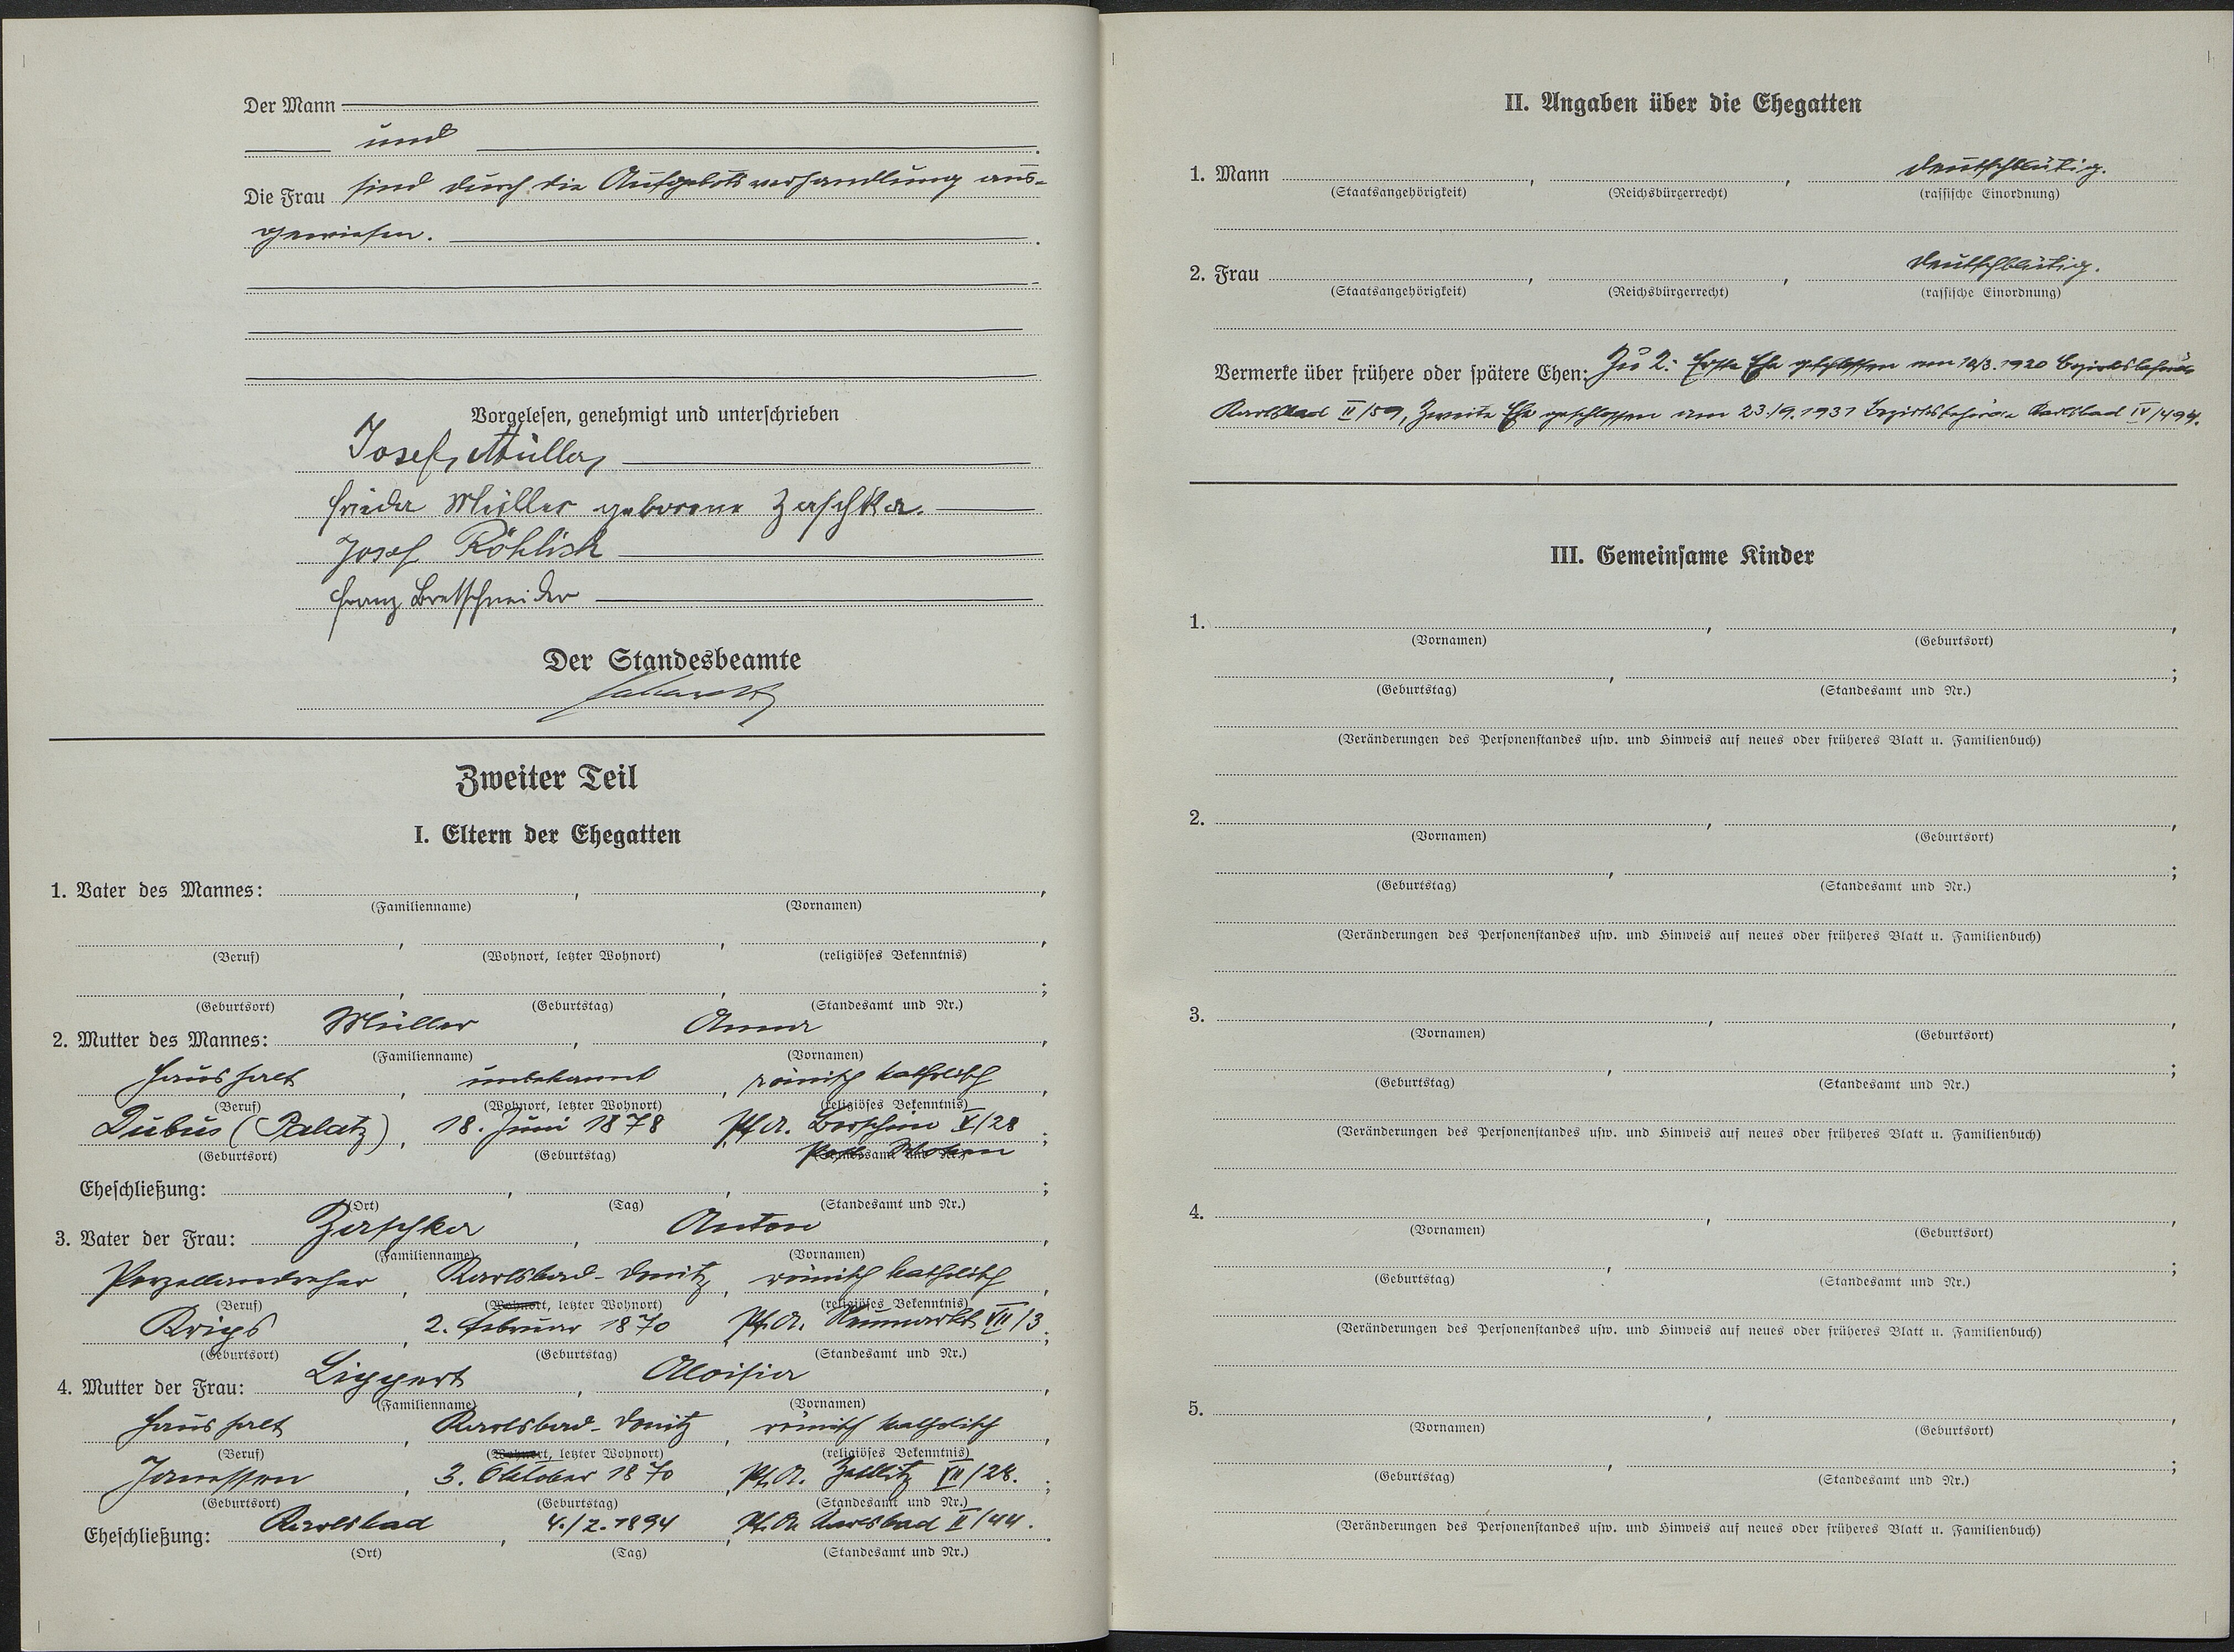 Der Mann
und
Die Frau sind durch die Aufgebotsverhandlung aus-
gewiesen.
Vorgelesen, genehmigt und unterschrieben
Josef Müller
Frieda Müller geborene Zaschka.
Josef Röhlich
Franz Bretschneider
Der Standesbeamte
Zweiter Teil
I. Eltern der Ehegatten
1. Vater des Mannes: , ,
(Familienname) (Vornamen)
, , ,
(Beruf) (Wohnort, letzter Wohnort) (religiöses Bekenntnis)
, , ;
(Geburtsort) (Geburtstag) (Standesamt und Nr.)
2. Mutter des Mannes: Müller , Anna ,
(Familienname) (Vornamen)
Haushalt , unbekannt , römisch katholisch ,
(Beruf) (Wohnort, letzter Wohnort) (religiöses Bekenntnis)
Dubus (Palatz) , 18. Juni 1878 , Pf. A. X/28 ;
(Geburtsort) (Geburtstag) (Standesamt und Nr.)
Eheschließung: , , ;
(Ort) (Tag) (Standesamt und Nr.)
3. Vater der Frau: Zaschka , Anton ,
(Familienname) (Vornamen)
Porzellandreher , Karlsbad-Donitz , römisch katholisch ,
(Beruf) (Wohnort, letzter Wohnort) (religiöses Bekenntnis)
Krips , 2. Februar 1870 , Pf. A. Neumarkt VII/3 ;
(Geburtsort) (Geburtstag) (Standesamt und Nr.)
4. Mutter der Frau: Lippert , Aloisia ,
(Familienname) (Vornamen)
Haushalt , Karlsbad-Donitz , römisch katholisch ,
(Beruf) (Wohnort, letzter Wohnort) (religiöses Bekenntnis)
Janessen , 3. Oktober 1870 , Pf. A. Zettlitz VII/28. ;
(Geburtsort) (Geburtstag) (Standesamt und Nr.)
Eheschließung: Karlsbad , 4./2.1894 , Pf. A. Karlsbad II/44.
(Ort) (Tag) (Standesamt und Nr.)
II. Angaben über die Ehegatten
1. Mann , , deutschblütig.
(Staatsangehörigkeit) (Reichsbürgerrecht) (rassische Einordnung)
2. Frau , , deutschblütig.
(Staatsangehörigkeit) (Reichsbürgerrecht) (rassische Einordnung)
Vermerke über frühere oder spätere Ehen: Zu 2: Erste Ehe geschlossen am 1920 Bezirksbehörde
Karlsbad II/59, Zweite Ehe geschlossen am 23./9.1931 Bezirksbehörde Karlsbad IV/494.
III. Gemeinsame Kinder
1. , ,
(Vornamen) (Geburtsort)
, ;
(Geburtstag) (Standesamt und Nr.)
(Veränderungen des Personenstandes usw. und Hinweis auf neues oder früheres Blatt u. Familienbuch)
2. , ,
(Vornamen) (Geburtsort)
, ;
(Geburtstag) (Standesamt und Nr.)
(Veränderungen des Personenstandes usw. und Hinweis auf neues oder früheres Blatt u. Familienbuch)
3. , ,
(Vornamen) (Geburtsort)
, ;
(Geburtstag) (Standesamt und Nr.)
(Veränderungen des Personenstandes usw. und Hinweis auf neues oder früheres Blatt u. Familienbuch)
4. , ,
(Vornamen) (Geburtsort)
, ;
(Geburtstag) (Standesamt und Nr.)
(Veränderungen des Personenstandes usw. und Hinweis auf neues oder früheres Blatt u. Familienbuch)
5. , ,
(Vornamen) (Geburtsort)
, ;
(Geburtstag) (Standesamt und Nr.)
(Veränderungen des Personenstandes usw. und Hinweis auf neues oder früheres Blatt u. Familienbuch)